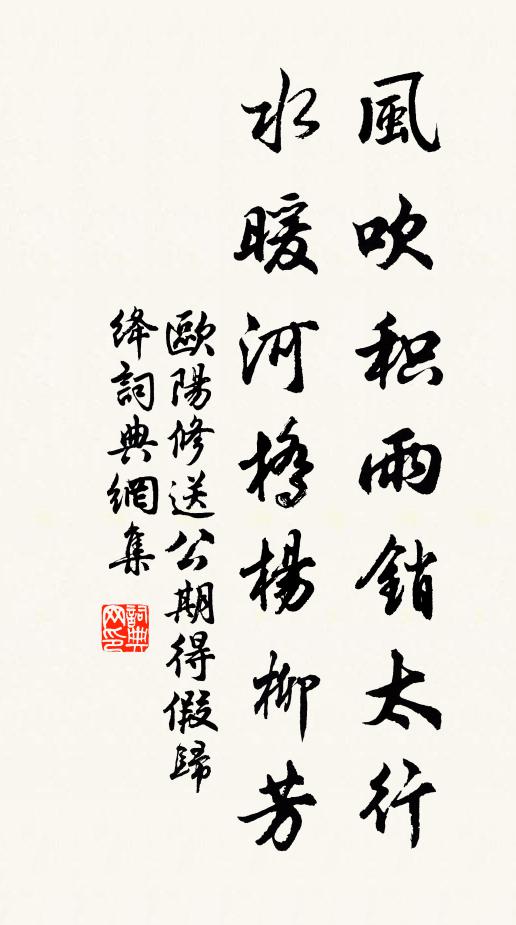 風吹积雨銷太行
水暖河橋楊柳芳
歐陽修送公期得假歸
絳詞典網集
詞典
网印